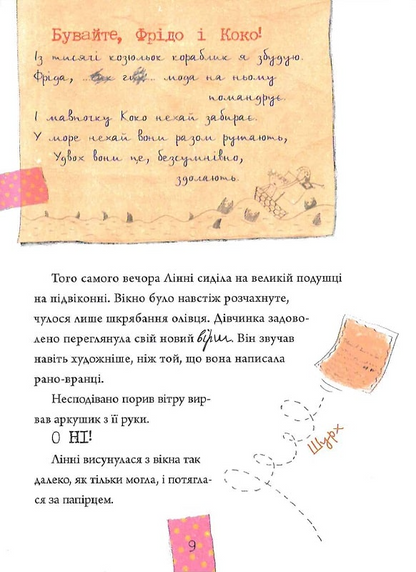 Бувайте, Фрідо і Коко!
Із тисячі козюльок кораблик я збудую.
Фріда, мода на ньому
помандрує.
І мавпочку Коко нехай забирає.
У море нехай вони разом рушають,
Удвох вони це, безсумнівно,
здолають.
Того самого вечора Лінні сиділа на великій подушці
на підвіконні. Вікно було навстіж розчахнуте,
чулося лише шкрябання олівця. Дівчинка задово-
лено переглянула свій новий вірш. Він звучав
навіть художніше, ніж той, що вона написала
рано-вранці.
Несподівано порив вітру вир-
вав аркушик з її руки.
О НІ!
Лінні висунулася з вікна так
далеко, як тільки могла, і потягла-
ся за папірцем.
Шурх
9